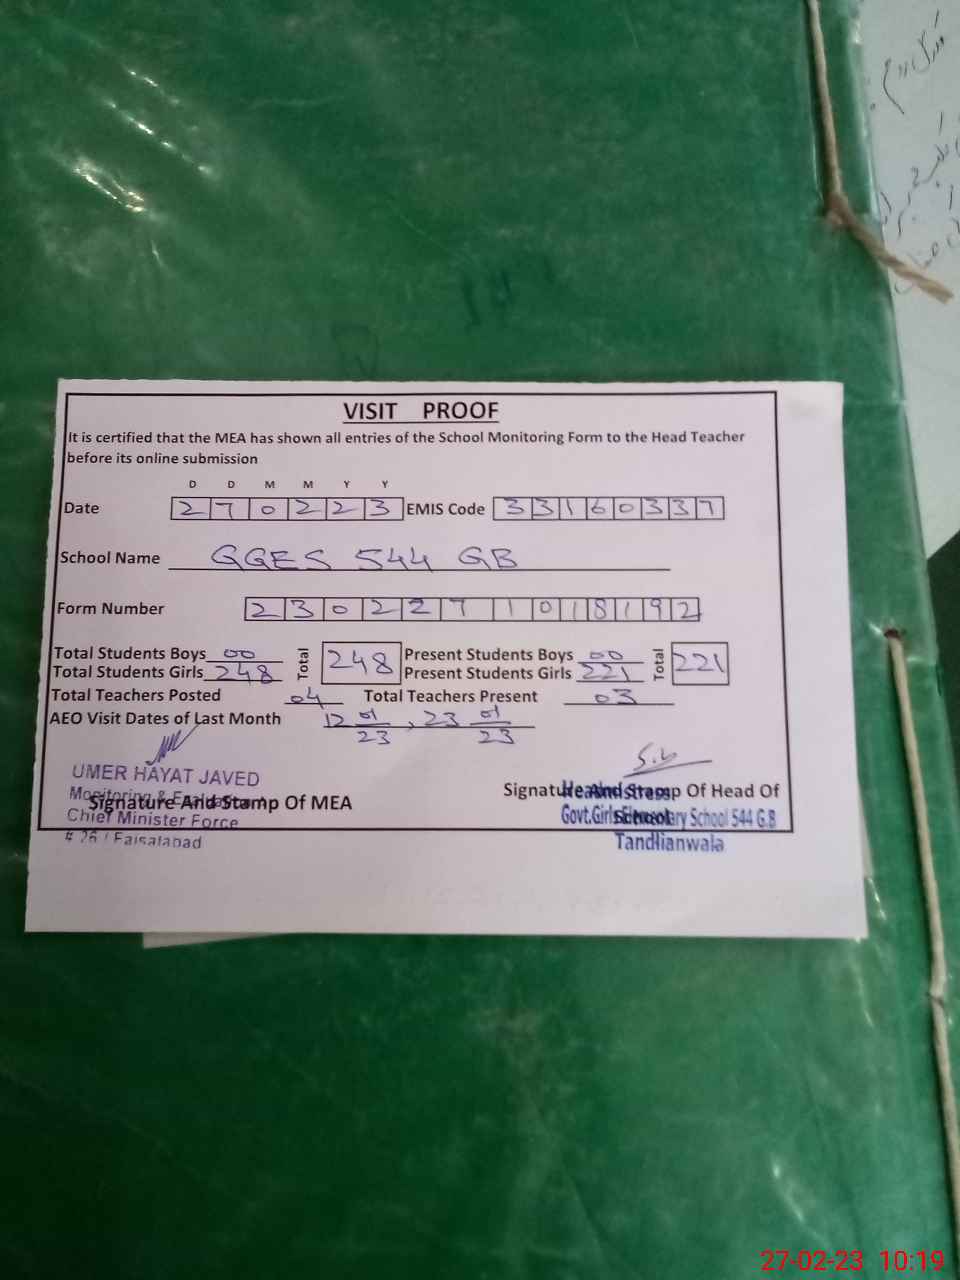 VISIT PROOF
It is certified that the MEA has shown all entries of the School Monitoring Form to the Head Teacher
before its online submission
D D M M Y Y
Date 2 7 0 2 2 3 EMIS Code 3 3 1 6 0 3 3 7
School Name GGES 544 GB
Form Number 2 3 0 2 2 7 1 0 1 8 1 9 2
Total Students Boys 00 Total 248 Present Students Boys 00 Total 221
Total Students Girls 248 Present Students Girls 221
Total Teachers Posted 04 Total Teachers Present 03
AEO Visit Dates of Last Month 12 01/23, 23 01/23
UMER HAYAT JAVED
Monitoring & Evaluation
Signature And Stamp Of MEA
Chief Minister Force
# 26 / Faisalabad
Signature And Stamp Of Head Of
School
Headmistress
Govt.Girls Elementary School 544 G.B
Tandlianwala
27-02-23 10:19